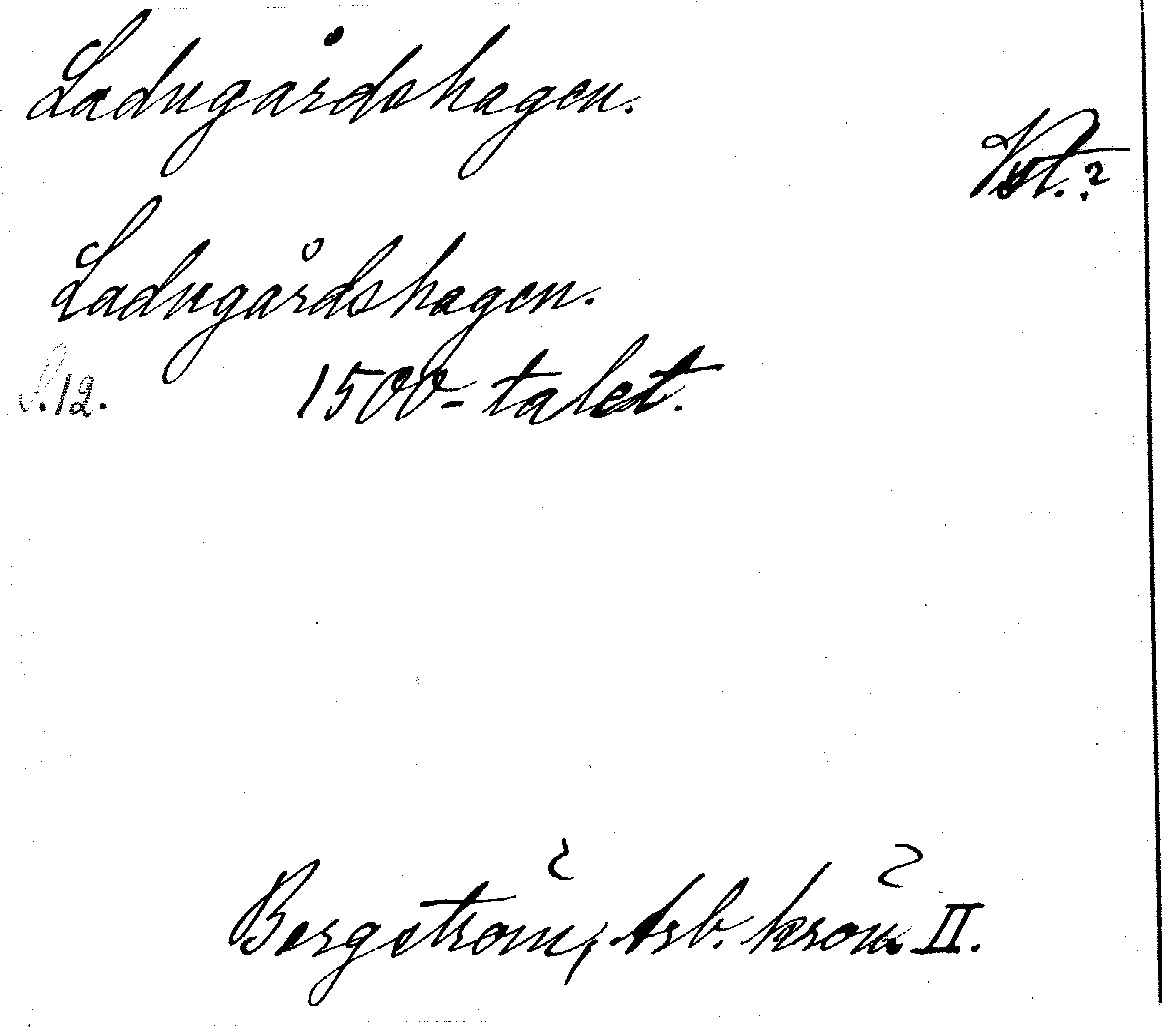 Ladugårdshagen.
Vst.?
Ladugårdshagen.
S.12. 1500-talet.
Bergström, Arb. krön. II.